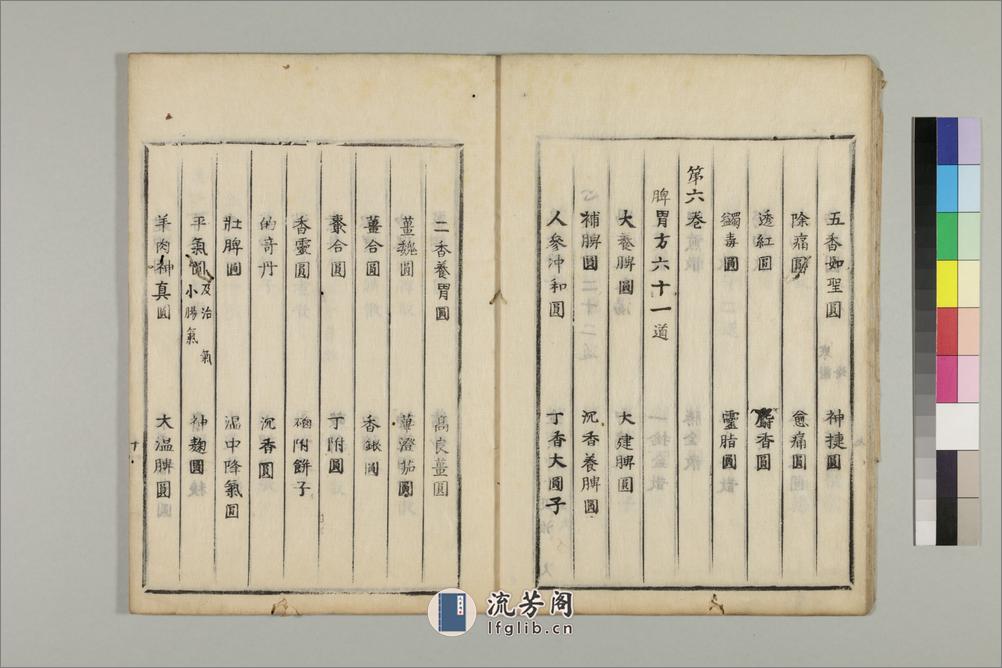 五香如聖圓　神捷圓
除痛圓　愈痛圓
透紅圓　麝香圓
蠲毒圓　靈脂圓
第六卷
脾胃方六十一道
大養脾圓　大建脾圓
補脾圓　沉香養脾圓
人參沖和圓　丁香大圓子
二香養胃圓　高良薑圓
薑魏圓　蓽澄茄圓
薑合圓　香銀圓
棗合圓　丁附圓
香靈圓　硇附餅子
的奇丹　沉香圓
壯脾圓　溫中降氣圓
平氣圓及治小腸氣氣　神麴圓
羊肉神真圓　大溫脾圓
流芳阁
lfglib.cn